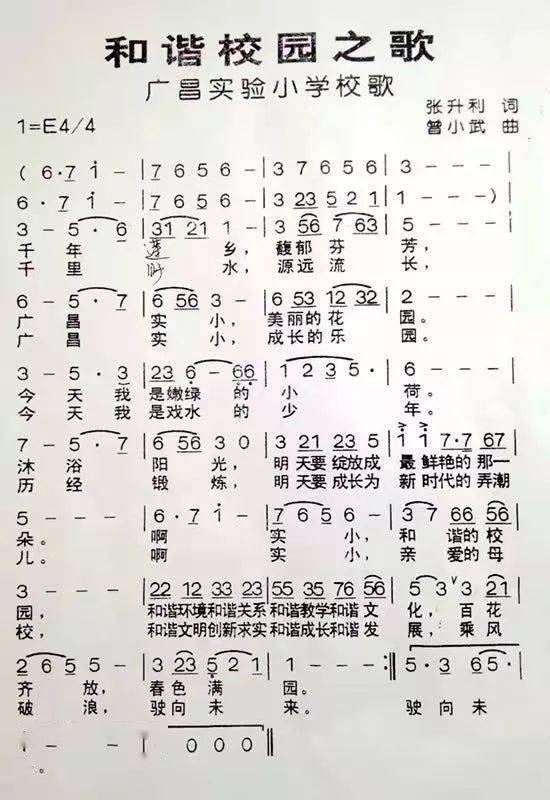 和谐校园之歌
广昌实验小学校歌
张升利 词
1=E4/4 曾小武 曲
( 6·7 i - | 7 6 5 6 | 3 7 6 5 6 | 3 - - - |
6·7 i - | 7 6 5 6 | 3 23 5 2 1 | 1 - - - )
3 - 5·6 | 31 21 1 - | 3 56 7 63 | 5 - - - |
千年莲乡，馥郁芬芳，
千里盱水，源远流长，
6 - 5·7 | 6 56 3 - | 6 53 12 32 | 2 - - - |
广昌实小，美丽的花园。
广昌实小，成长的乐园。
3 - 5·3 | 23 6 - 66 | 1 2 3 5· | 6 - - - |
今天我是嫩绿的小荷。
今天我是戏水的少年。
7 - 5·7 | 6 56 3 0 | 3 21 23 5 | i i 7·7 67 |
沐浴阳光，明天要绽放成最鲜艳的那一
历经锻炼，明天要成长为新时代的弄潮
5 - - - | 6·7 i - | 7 6 5 6 - | 3 7 66 56 |
朵。啊实小，和谐的校
儿。啊实小，亲爱的母
3 - - - | 22 12 33 23 | 55 35 76 56 | 5 3 ∨ 3 21 |
园，和谐环境和谐关系和谐教学和谐文化，百花
校，和谐文明创新求实和谐成长和谐发展，乘风
2 6 5 5 - | 3 23 5 2 1 | 1 - - - :‖ 5·3 6 5 5 - |
齐放，春色满园。
破浪，驶向未来。驶向未
i - - - | i - - - | 0 0 0 ‖
。